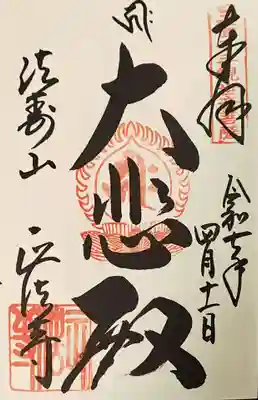 奉拝
令和七年
四月十一日
大悲殿
法寿山
正法寺